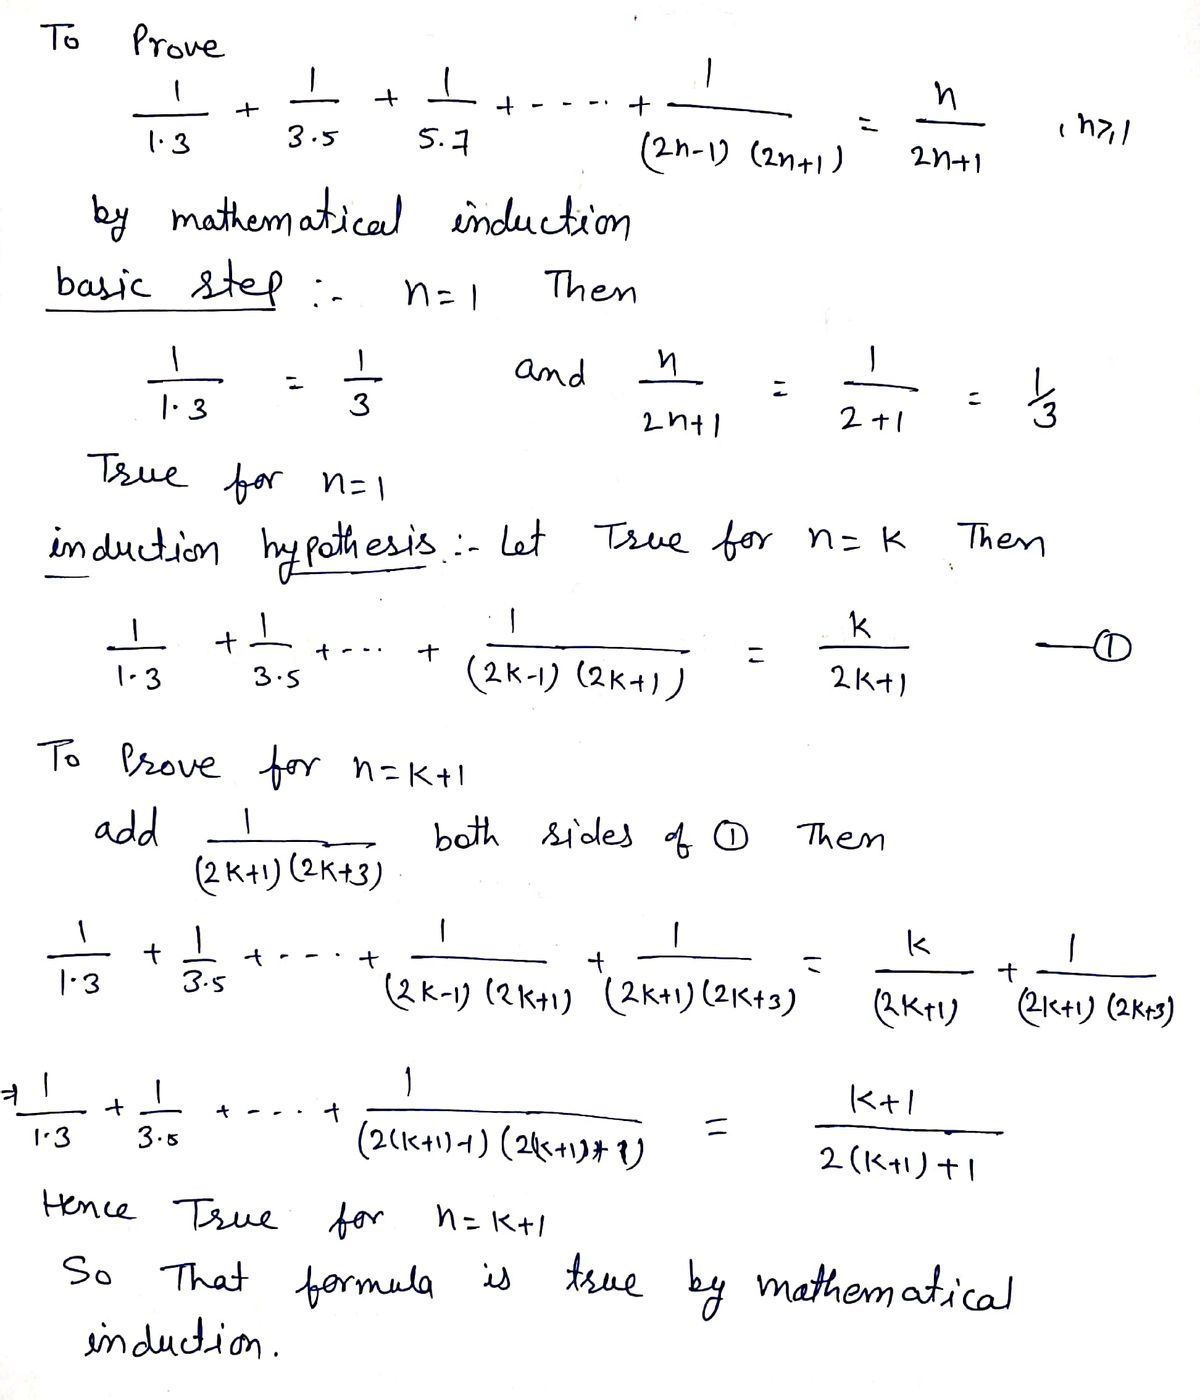 To Prove
1/1·3 + 1/3·5 + 1/5·7 + ---- + 1/(2n-1)(2n+1) = n/2n+1 , n≥1
by mathematical induction
basic step :- n=1 Then
1/1·3 = 1/3 and n/2n+1 = 1/2+1 = 1/3
True for n=1
induction hypothesis :- Let True for n=k Then
1/1·3 + 1/3·5 + ---- + 1/(2k-1)(2k+1) = k/2k+1 —①
To Prove for n=k+1
add 1/(2k+1)(2k+3) both sides of ① Then
1/1·3 + 1/3·5 + ---- + 1/(2k-1)(2k+1) + 1/(2k+1)(2k+3) = k/(2k+1) + 1/(2k+1)(2k+3)
⇒ 1/1·3 + 1/3·5 + ---- + 1/(2(k+1)-1)(2(k+1)+1) = k+1/2(k+1)+1
Hence True for n=k+1
So That formula is true by mathematical
induction.